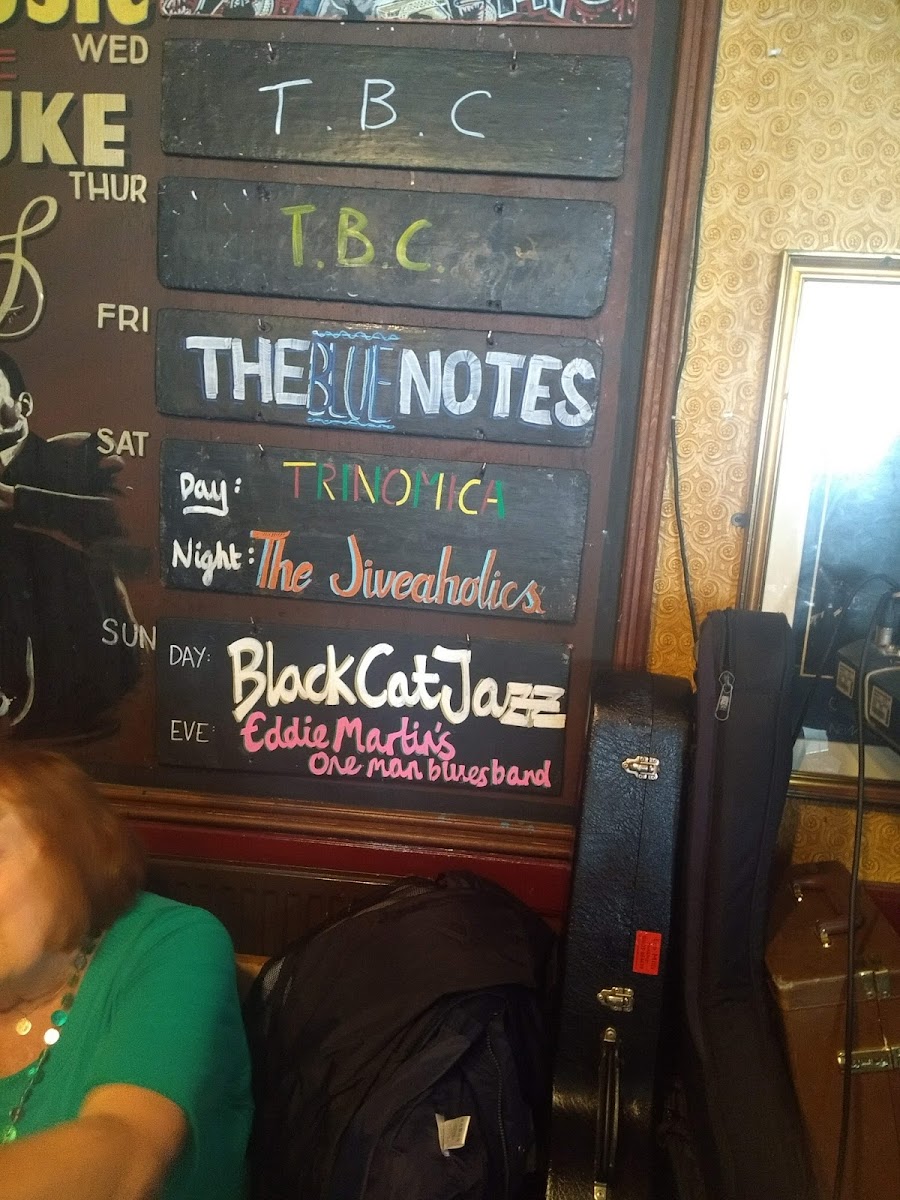 WED
T.B.C
UKE
THUR
T.B.C.
FRI
THE BLUE NOTES
SAT
Day: TRINOMICA
Night: The Jiveaholics
SUN
DAY: Black Cat Jazz
EVE: Eddie Martin's
One man blues band